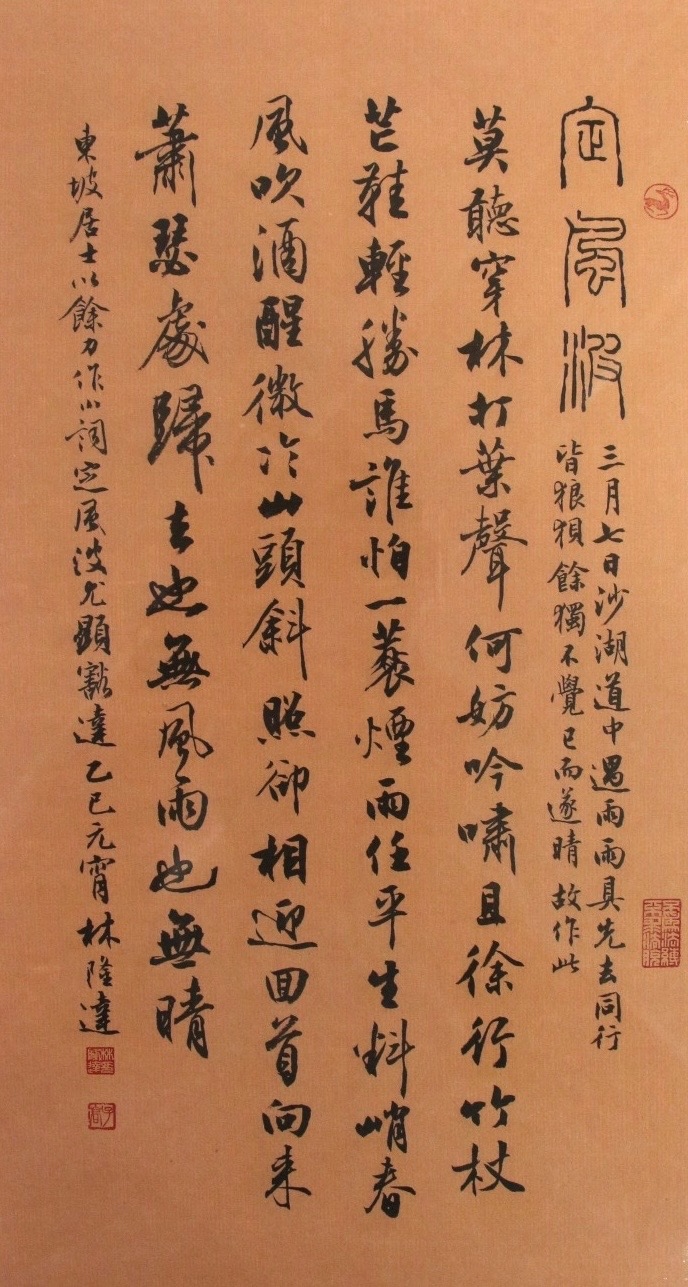 定風波
三月七日沙湖道中遇雨雨具先去同行
皆狼狽餘獨不覺已而遂晴故作此
莫聽穿林打葉聲何妨吟嘯且徐行竹杖
芒鞋輕勝馬誰怕一蓑煙雨任平生料峭春
風吹酒醒微冷山頭斜照卻相迎回首向来
蕭瑟處歸去也無風雨也無晴
東坡居士以餘力作小詞定風波尤顯豁達乙巳元宵林隆達